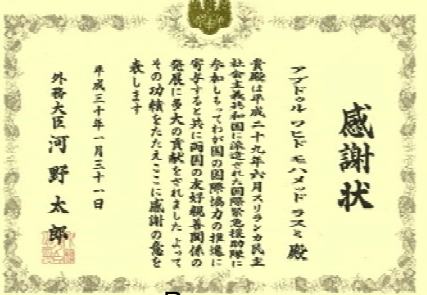 感謝状
アブドゥル ワヒド モハメッド ラスミ 殿
貴殿は平成二十九年六月スリランカ民主
社会主義共和国に派遣された国際緊急援助隊に
参加しもってわが国の国際協力の推進に
寄与すると共に両国の友好親善関係の
発展に多大の貢献をされました よって
その功績をたたえここに感謝の意を
表します
平成三十年一月三十一日
外務大臣 河野太郎